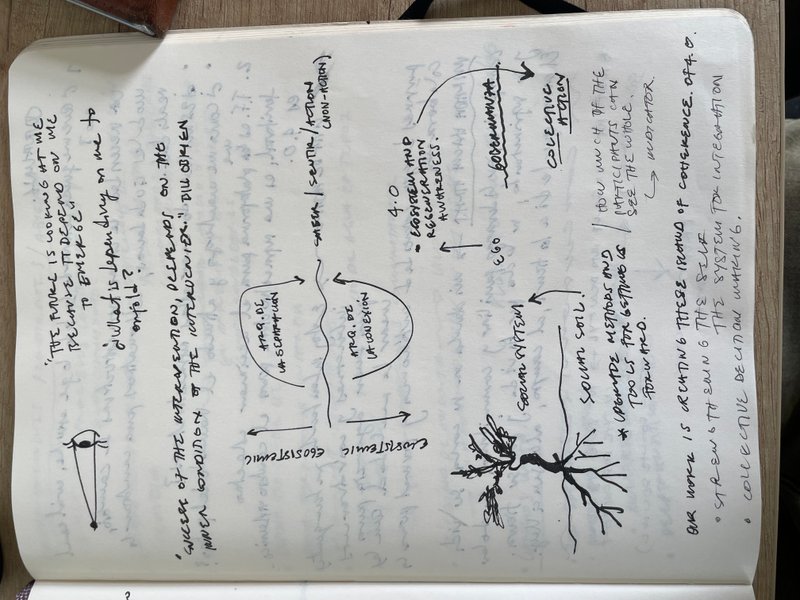 "THE FUTURE IS LOOKING AT ME
BECAUSE IT DEPEND ON ME
TO EMERGE"
¿What is depending on me to
unfold?
"SUCCESS OF THE INTERVENTION, DEPENDS ON THE
INNER CONDITION OF THE INTERVENIER." BILL OBRIEN
EGOSISTEMIC
ECOSISTEMIC
ARQ. DE
LA SEPARACIÓN
ARQ. DE
LA CONEXIÓN
SABER / SENTIR / ACTION
(NON-ACTION)
4.0
• ECOSYSTEM AND
REGENERATION
AWARENESS.
EGO
COLLECTIVE
ACTION
SOCIAL SYSTEM
SOCIAL SOIL.
* UPGRADE METHODS AND
TOOLS FOR GETTING IS
FORWARD.
/ HOW MUCH OF THE
PARTICIPANTS CAN
SEE THE WHOLE.
↳ INDICATOR.
OUR WORK IS CREATING THESE ISLAND OF COHERENCE. OF 4.0.
• STRENGTHENING THE SELF
THE SYSTEM FOR INTEGRATION
• COLLECTIVE DECITION MAKING.
?